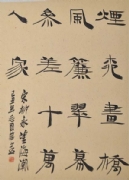 煙柳畫橋
風簾翠幕
參差十萬
人家
宋柳永望海潮